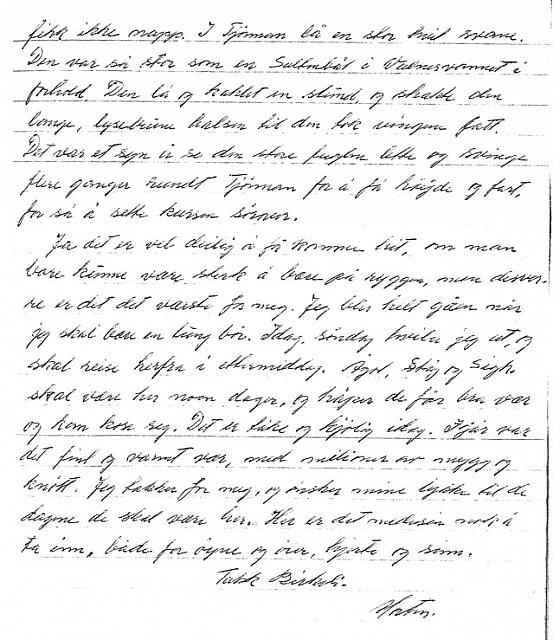 fikk ikke napp. I Tjönnan lå en stor hvit svane.
Den var så stor som en Saltenbåt i Vatnesvannet i
forhold. Den lå og kaklet en stund, og strakk den
lange, lysebrune halsen til den tok vingene fatt.
Det var et syn å se den store fuglen lette og svinge
flere ganger rundt Tjönnan for å få höyde og fart,
for så å sette kursen sörover.
Ja det er vel deilig å få komme hit, om man
bare kunne være sterk å bære på ryggen, men desver-
re er det det værste for meg. Jeg blir helt gåen når
jeg skal bære en tung bör. Idag, söndag hviler jeg ut, og
skal reise herfra i ettermiddag. Ågot, Stig og Sigh.
skal være her noen dager, og håper de får bra vær
og kan kose seg. Det er tåke og kjölig idag. Igår var
det fint og varmt vær, med milioner av mygg og
knott. Jeg takker for meg, og önsker mine lykke til de
dagene de skal være her. Her er det medisin nok å
ta inn, både for öyne og örer, hjerte og sinn.
Takk